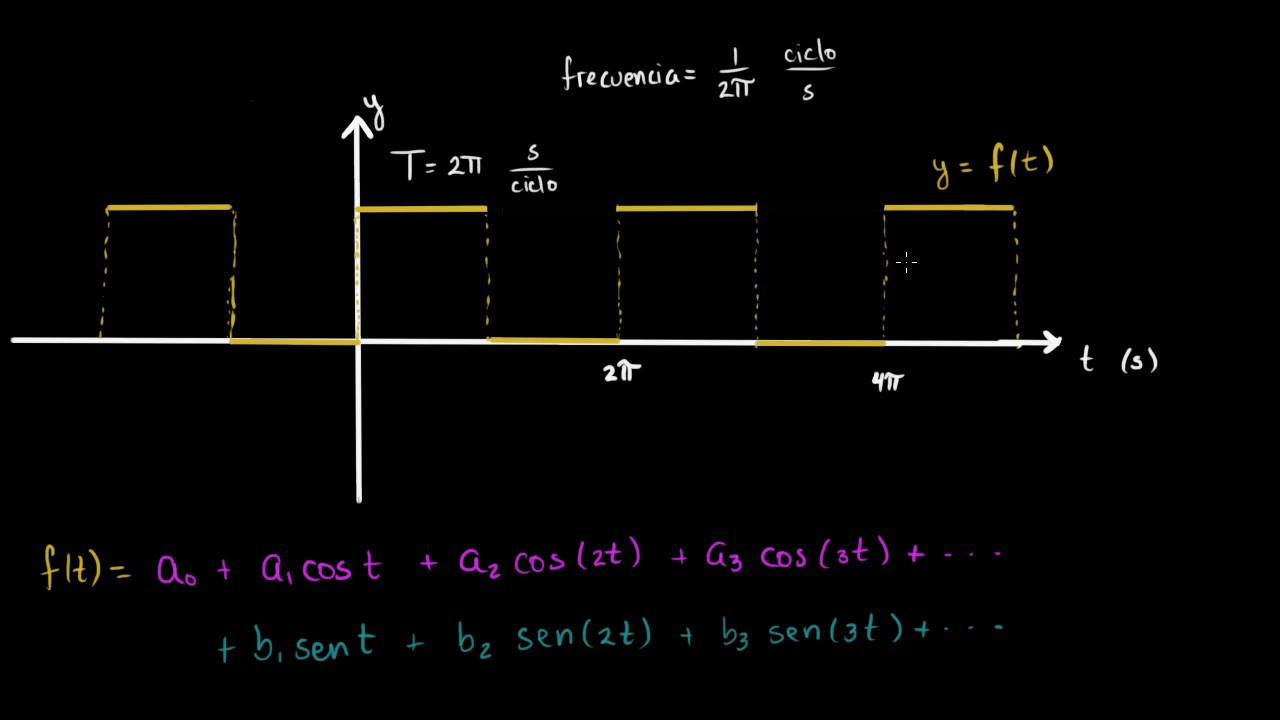 frecuencia = 1/2π ciclo/s
y
T = 2π s/ciclo
y = f(t)
2π
4π
t (s)
f(t) = a₀ + a₁ cos t + a₂ cos(2t) + a₃ cos(3t) + ...
+ b₁ sen t + b₂ sen(2t) + b₃ sen(3t) + ...